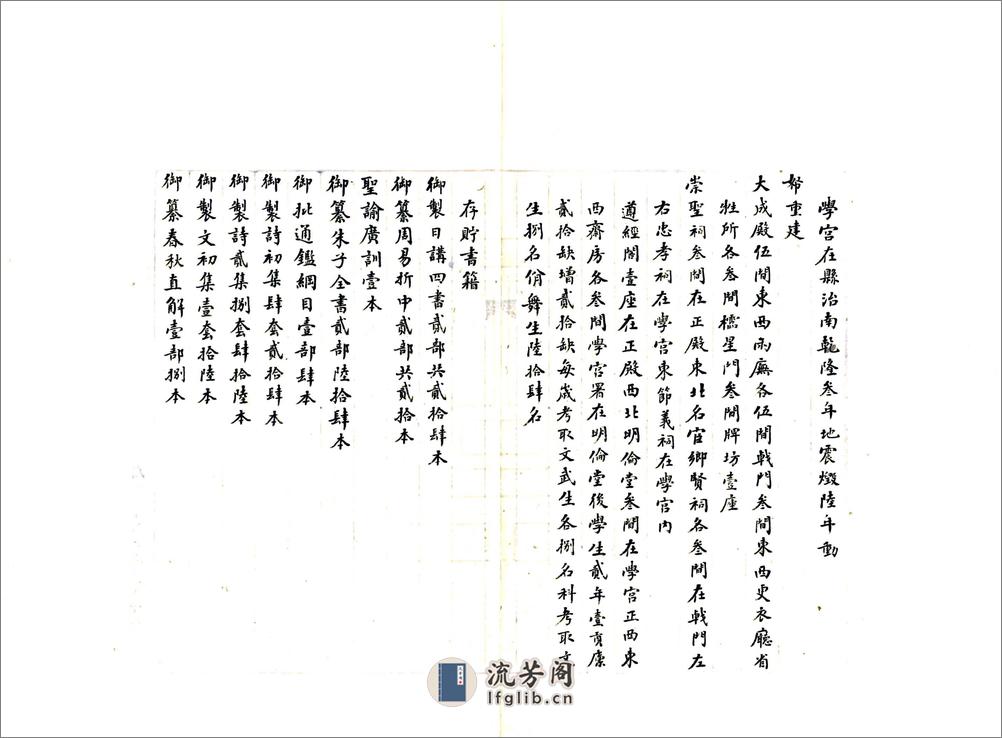 學宮在縣治南乾隆叁年地震燬陸年動
帑重建
大成殿伍間東西兩廡各伍間戟門叁間東西更衣廳省
牲所各叁間櫺星門叁間牌坊壹座
崇聖祠叁間在正殿東北名宦鄉賢祠各叁間在戟門左
右忠孝祠在學宮東節義祠在學宮內
遵經閣壹座在正殿西北明倫堂叁間在學宮正西東
西齋房各叁間學宮署在明倫堂後學生貳年壹貢廩
貳拾缺增貳拾缺每歲考取文武生各捌名科考取文
生捌名佾舞生陸拾肆名
存貯書籍
御製日講四書貳部共貳拾肆本
御纂周易折中貳部共貳拾本
聖諭廣訓壹本
御纂朱子全書貳部陸拾肆本
御批通鑑綱目壹部肆本
御製詩初集肆套貳拾肆本
御製詩貳集捌套肆拾陸本
御製文初集壹套拾陸本
御纂春秋直解壹部捌本
流芳阁
lfglib.cn